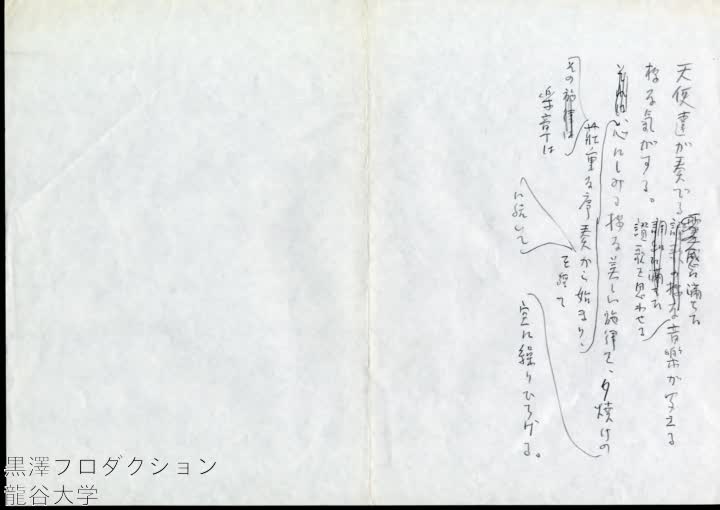 天使達が奏でる
霊感に満ちた
讃歌の様な音楽が聞える
様な気がする。
讃歌を思わせる
心にしみる様な美しい旋律で、夕焼けの
荘重な序奏から始まり、
その旋律は
楽章は
を経て
に続いて
空に繰りひろげる。
黒澤プロダクション
龍谷大学